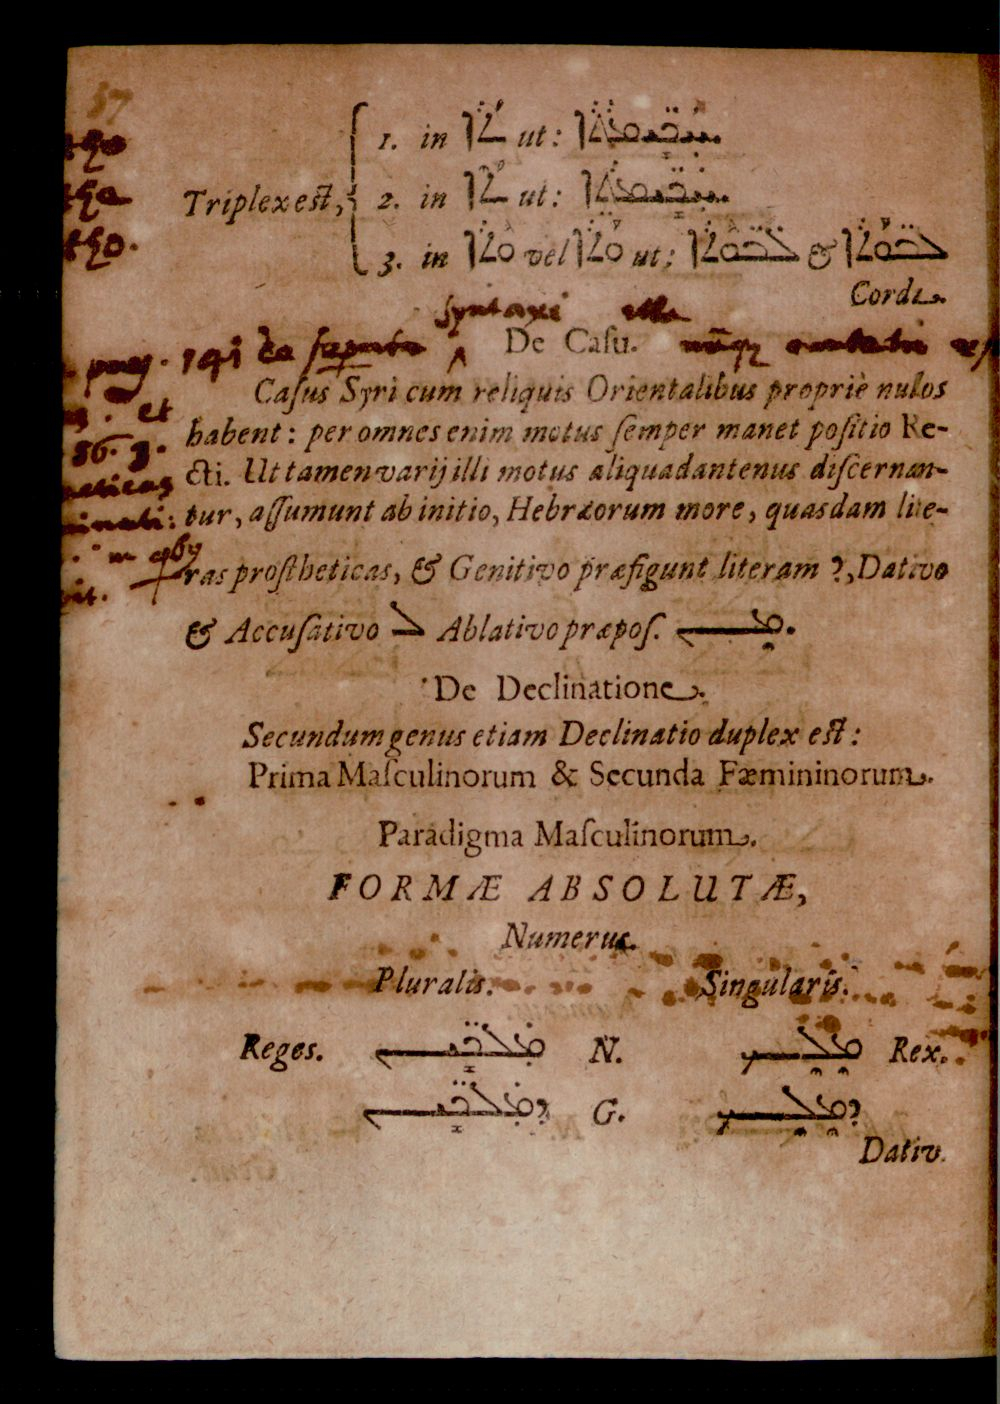 37
Triplex est,
1. in ܬܐ ut:
2. in ܬܐ ut:
3. in ܘܬܐ vel ܘܬܐ ut: ܠܒܘܬܐ & ܠܒܘܬܐ
Corda.
syntaxi illa
pag. 141
De Casu.
Casus Syri cum reliquis Orientalibus propriè nulos
et
habent: per omnes enim motus semper manet positio Re-
86. 3.
cti. Ut tamen varij illi motus aliquadantenus discernan-
tur, assumunt ab initio, Hebræorum more, quasdam lite-
ras prostheticas, & Genitivo præfigunt literam ܕ, Dativo
& Accusativo ܠ Ablativo præpos. ܡܢ.
De Declinatione.
Secundum genus etiam Declinatio duplex est:
Prima Masculinorum & Secunda Fæmininorum.
Paradigma Masculinorum.
FORMÆ ABSOLUTÆ,
Numerus.
Pluralis. Singularis.
Reges. ܡܠܟܝܢ N. ܡܠܟ Rex.
ܕܡܠܟܝܢ G. ܕܡܠܟ
Dativ.